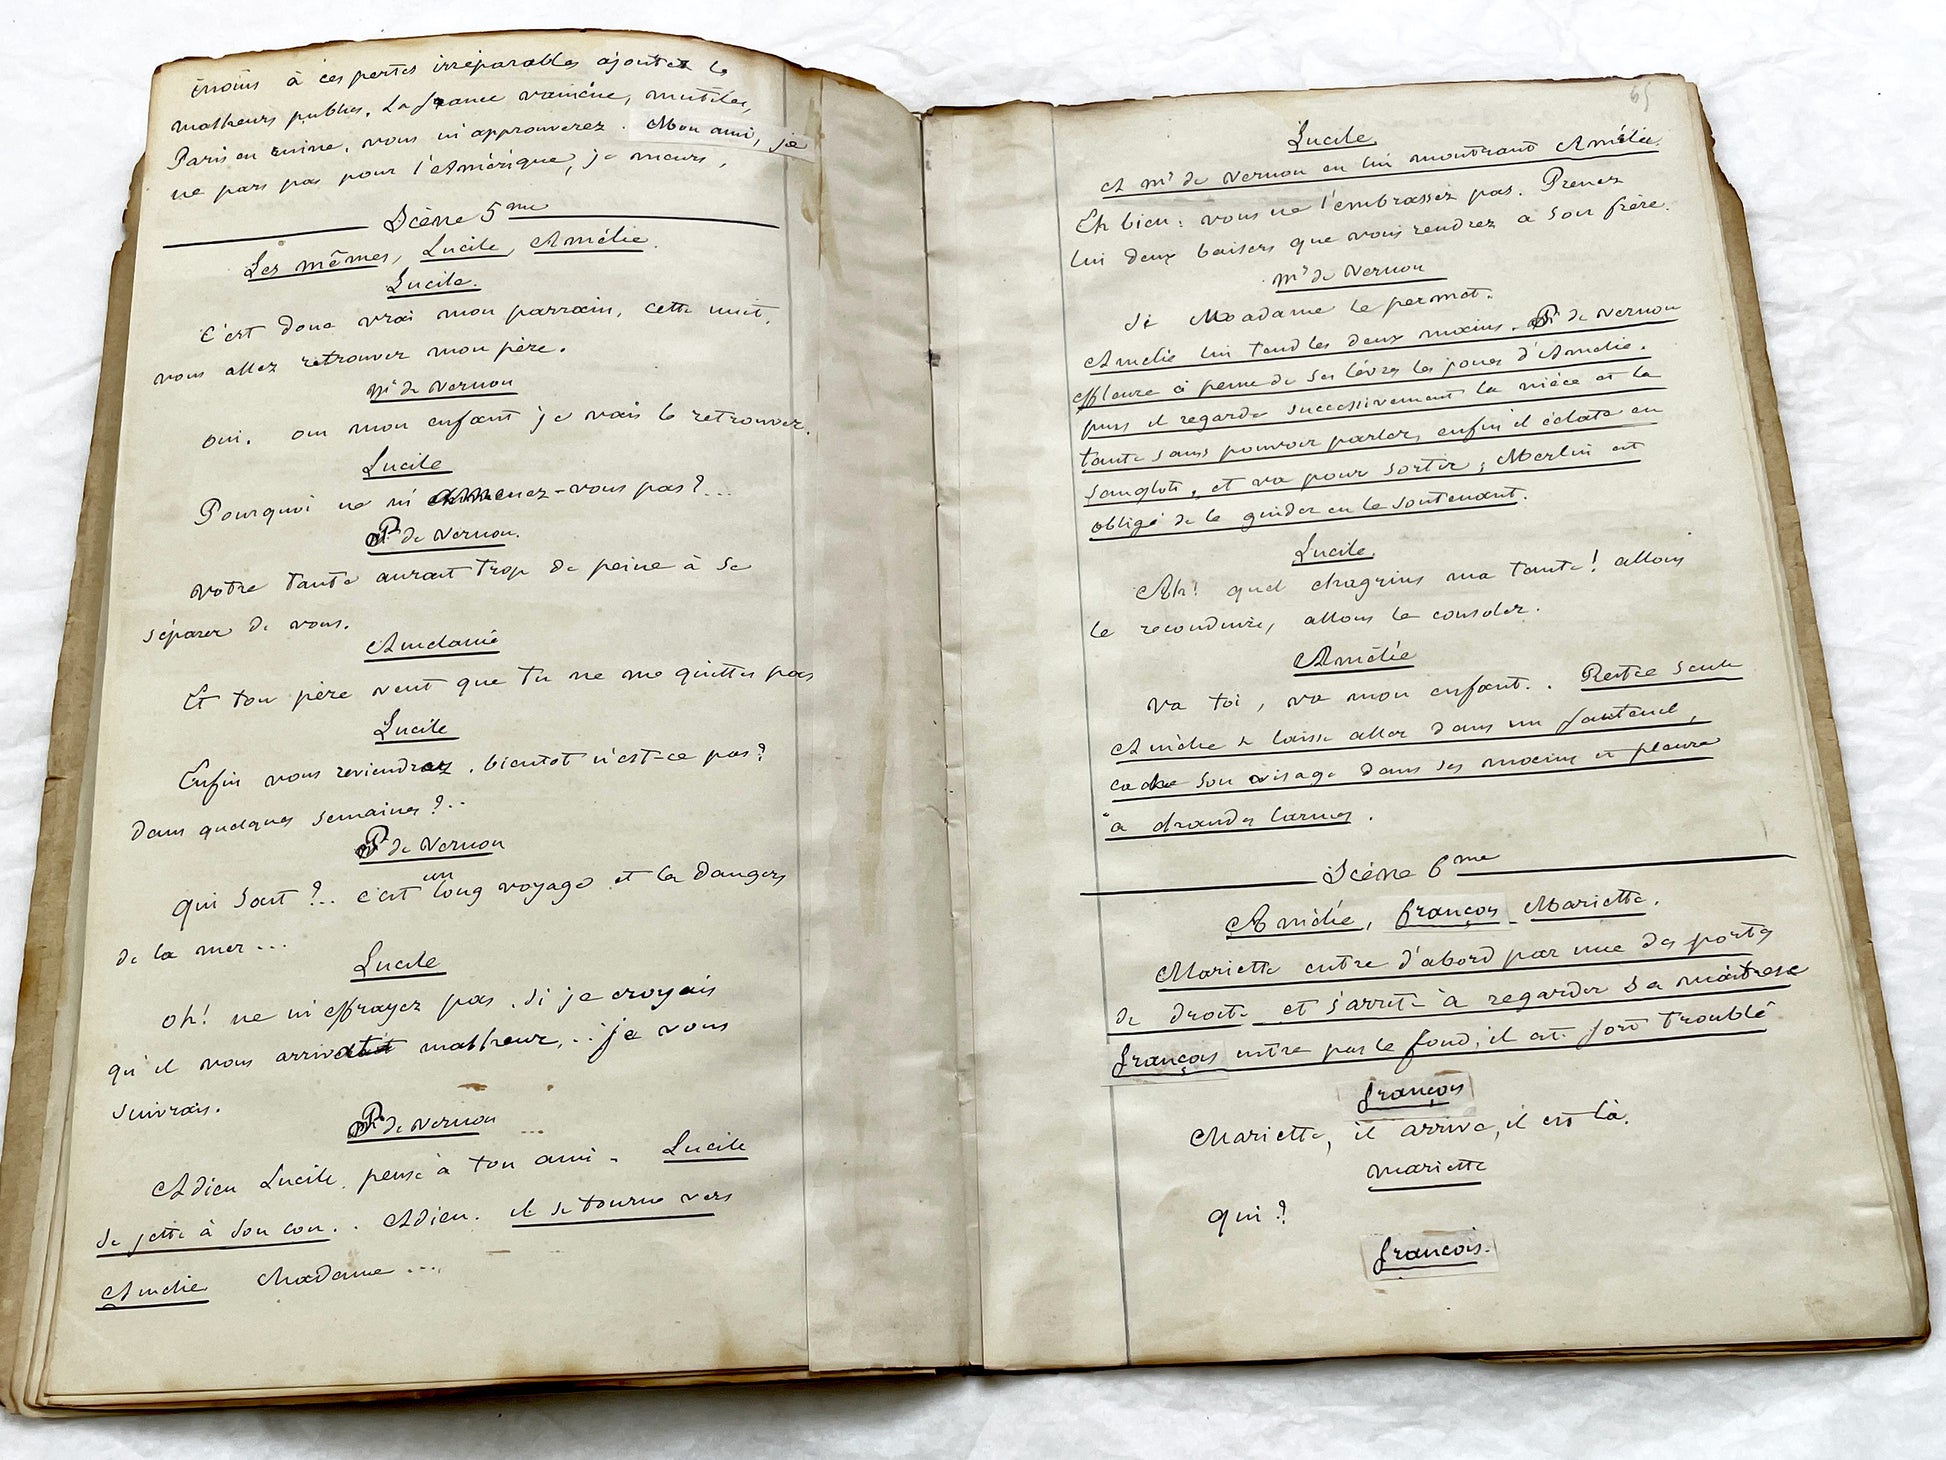 moins à ces pertes irréparables ajoutez les
malheurs publics. La france vaincue, mutilée,
Paris en ruine, vous m'approuverez. Mon ami, je
ne pars pas pour l'Amérique, je meurs.
Scène 5me
Les mêmes, Lucile, Amélie.
Lucile.
C'est donc vrai mon parrain, cette nuit,
vous allez retrouver mon père.
Mr de Vernon
oui. oui mon enfant je vais le retrouver.
Lucile
Pourquoi ne m'emmenez-vous pas?...
P. de Vernon.
Votre tante aurait trop de peine à se
séparer de vous.
Et ton père veut que tu ne me quittes pas
Lucile
Enfin vous reviendrez, bientot n'est-ce pas?
dans quelques semaines?..
P. de Vernon
qui sait?... c'est un long voyage et les dangers
de la mer...
Lucile
Oh! ne m'effrayez pas. Si je croyais
qu'il vous arrivât malheur,... je vous
suivrais.
P. de Vernon
Adieu Lucile, pense à ton ami. Lucile
se jette à son cou.. Adieu. il se tourne vers
Amélie Madame ...
65
Lucile
A Mr de Vernon en lui montrant Amélie
Eh bien: vous ne l'embrassez pas. Prenez
lui deux baisers que vous rendrez à son frère.
Mr de Vernon
Si Madame le permet.
Amélie lui tend les deux mains. P. de Vernon
effleure à peine de ses lèvres les joues d'Amélie.
puis il regarde successivement la nièce et la
tante sans pouvoir parler, enfin il éclate en
sanglots, et va pour sortir; Merlin est
obligé de le guider en le soutenant.
Lucile.
Ah! quel chagrins ma tante! allons
le reconduire, allons le consoler.
Amélie
Va toi, va mon enfant.. Restée seule
Amélie se laisse aller dans un fauteuil,
cache son visage dans ses mains et pleure
à grandes larmes.
Scène 6me
Amélie, françois Mariette.
Mariette entre d'abord par une des portes
de droite et s'arrête à regarder sa maitresse
françois entre par le fond, il est fort troublé
françois
Mariette, il arrive, il est là.
Mariette
qui?
francois.